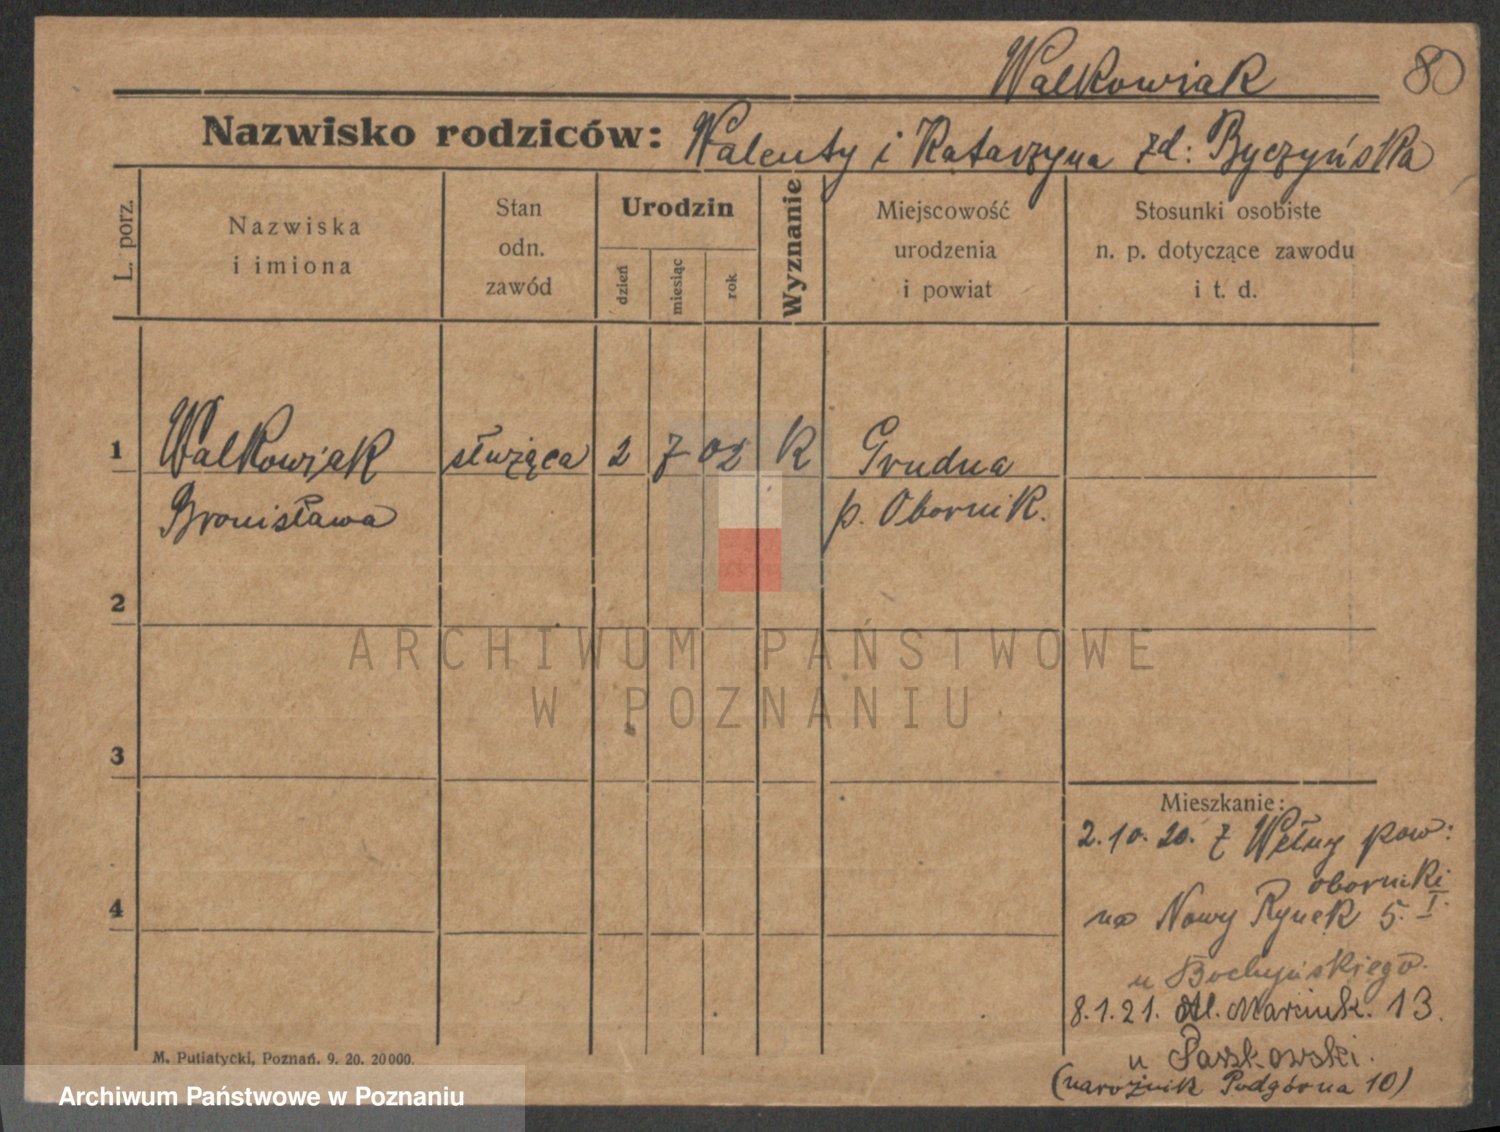 Walkowiak
80
Nazwisko rodziców: Walenty i Katarzyna zd: Byczyńska
L. porz.
Nazwiska
i imiona
Stan
odn.
zawód
Urodzin
dzień
miesiąc
rok
Wyznanie
Miejscowość
urodzenia
i powiat
Stosunki osobiste
n. p. dotyczące zawodu
i t. d.
1 Walkowiak służąca 2 7 02 K Grudna
Bronisława p. Obornik.
2
3
4
Mieszkanie:
2.10.20. z Wełny pow:
oborniki
na Nowy Rynek 5. I.
u Bochyńskiego.
8.1.21. Marcink. 13.
u
(narożnik Podgórna 10)
M. Putiatycki, Poznań. 9. 20. 20000.
ARCHIWUM PAŃSTWOWE
W POZNANIU
Archiwum Państwowe w Poznaniu